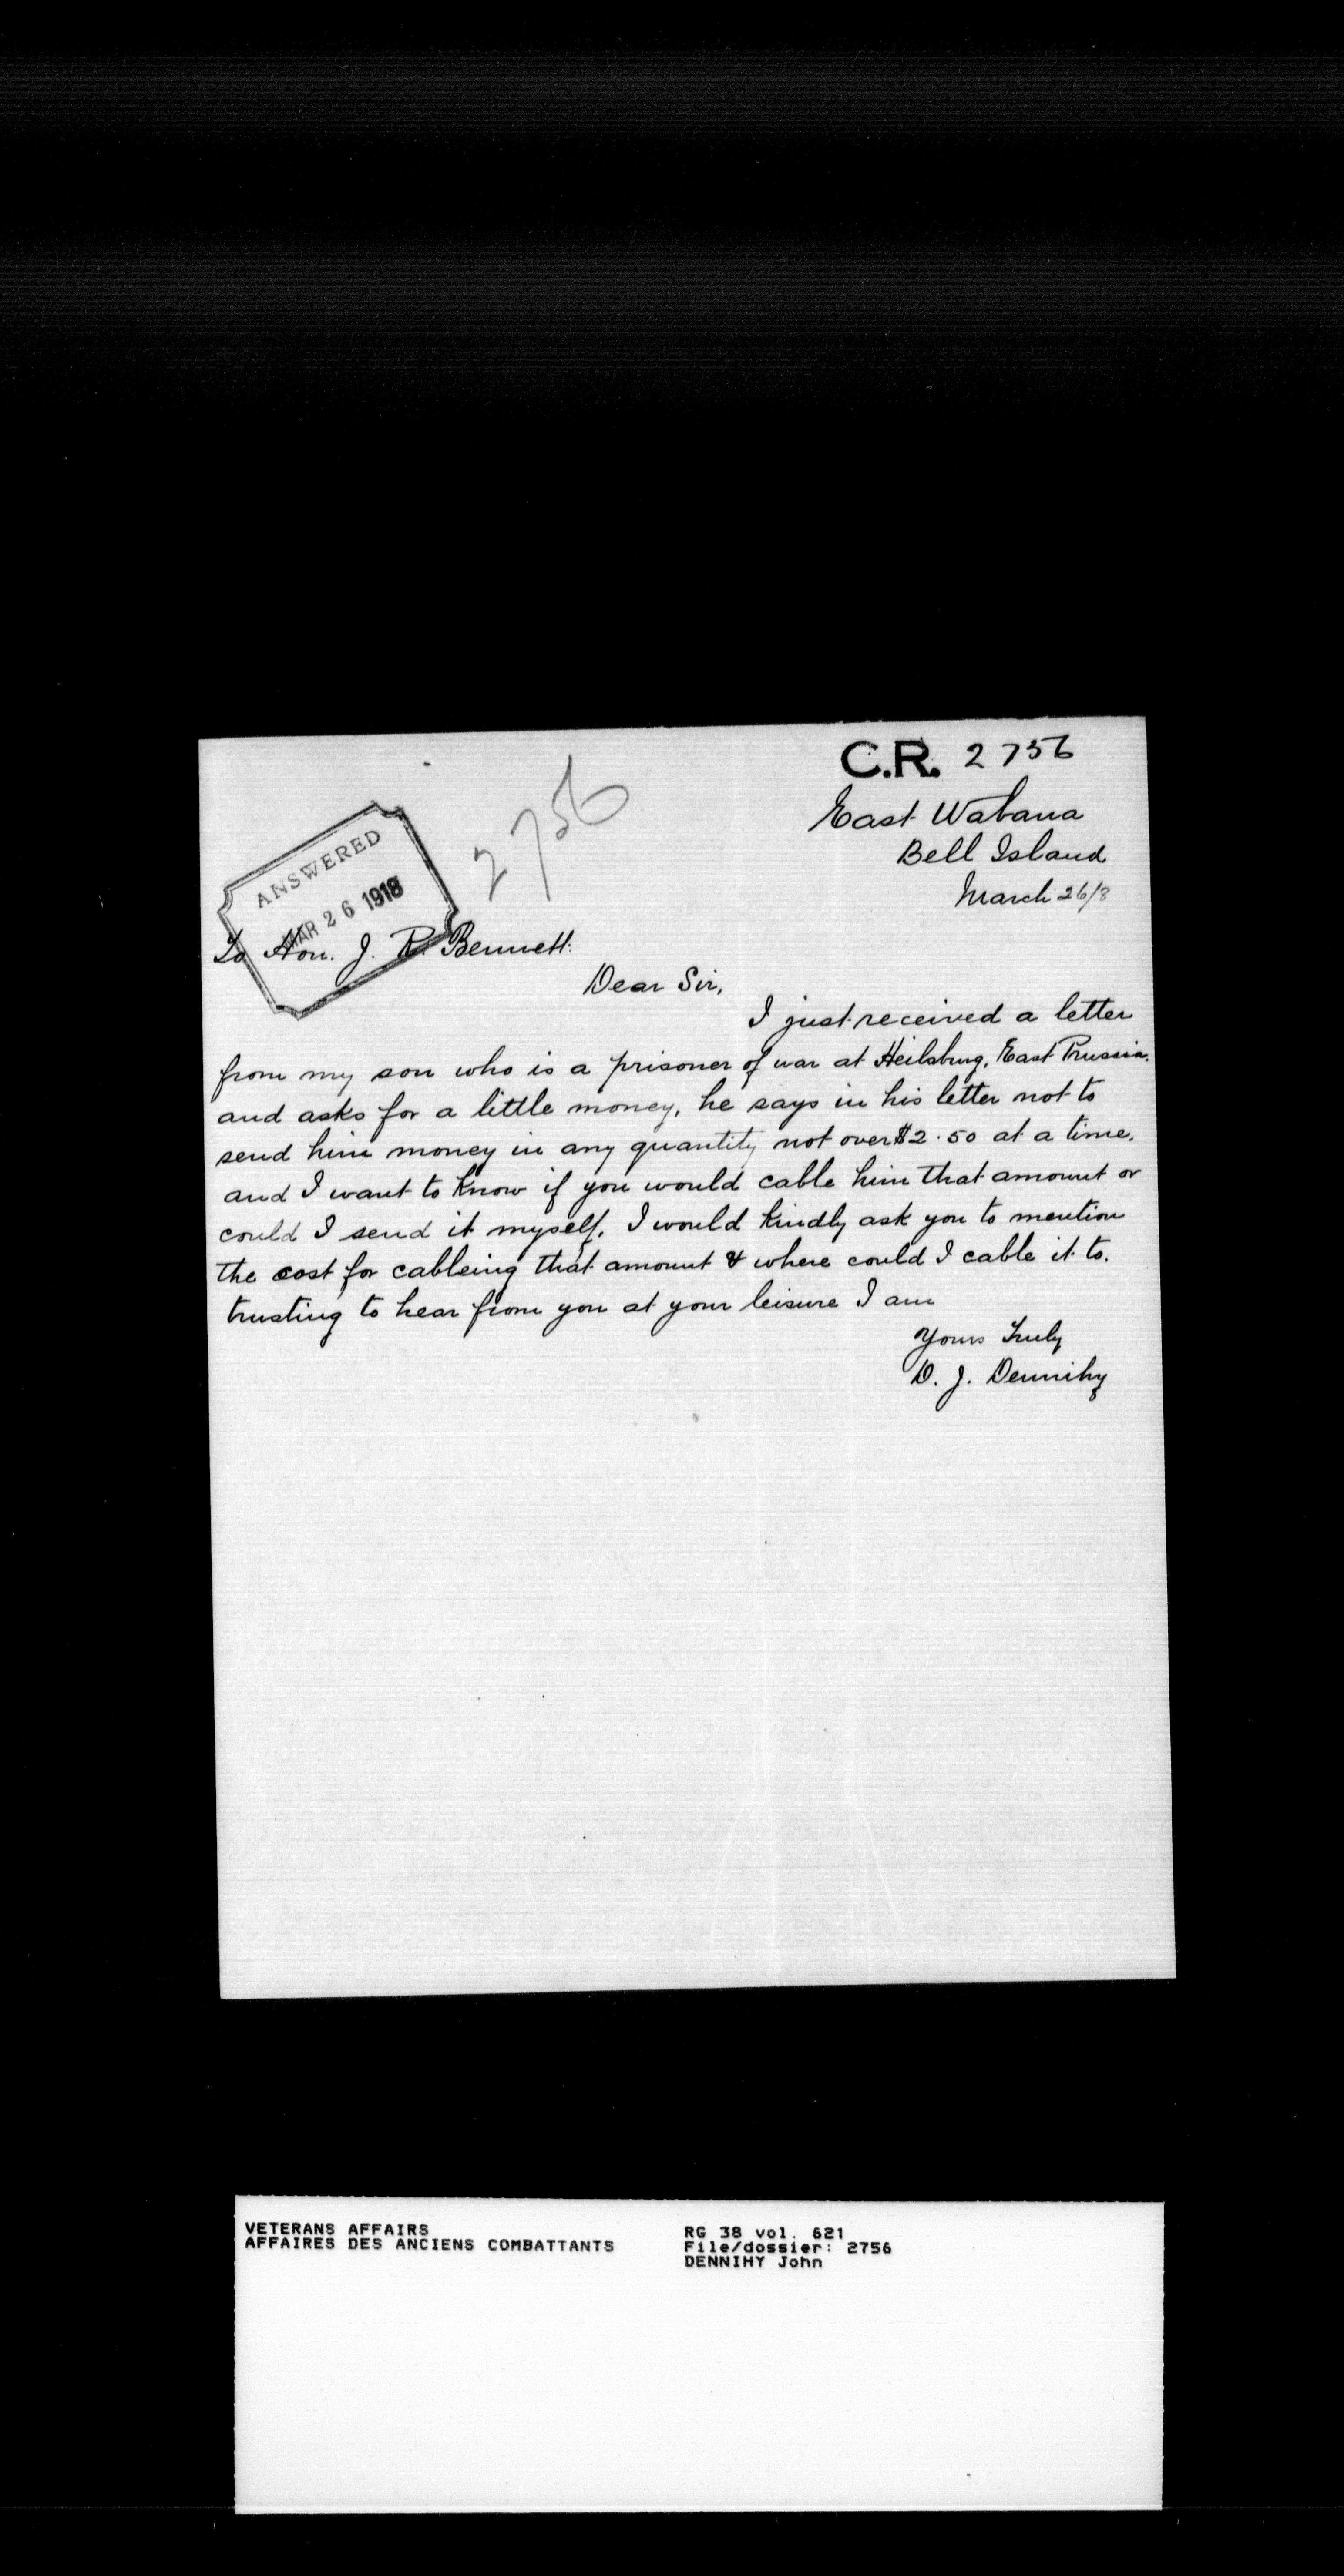 C.R. 2756
2756
East Wabana
Bell Island
March 26/8
ANSWERED
MAR 26 1918
To Hon. J. R. Bennett.
Dear Sir,
I just received a letter
from my son who is a prisoner of war at Heilsburg, East Prussia.
and asks for a little money, he says in his letter not to
send him money in any quantity not over $2.50 at a time.
and I want to know if you would cable him that amount or
could I send it myself. I would kindly ask you to mention
the cost for cableing that amount & where could I cable it to.
trusting to hear from you at your leisure I am
Yours Truly
D. J. Dennihy
VETERANS AFFAIRS
AFFAIRES DES ANCIENS COMBATTANTS
RG 38 vol. 621
File/dossier: 2756
DENNIHY John